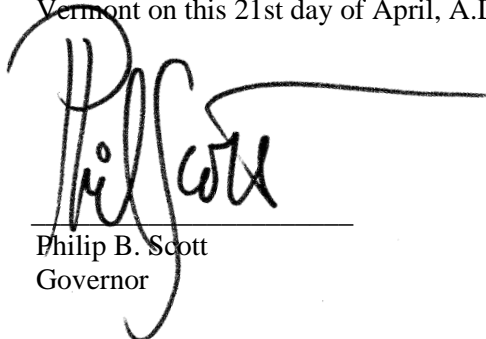 Vermont on this 21st day of April, A.D
Phil Scott
Philip B. Scott
Governor